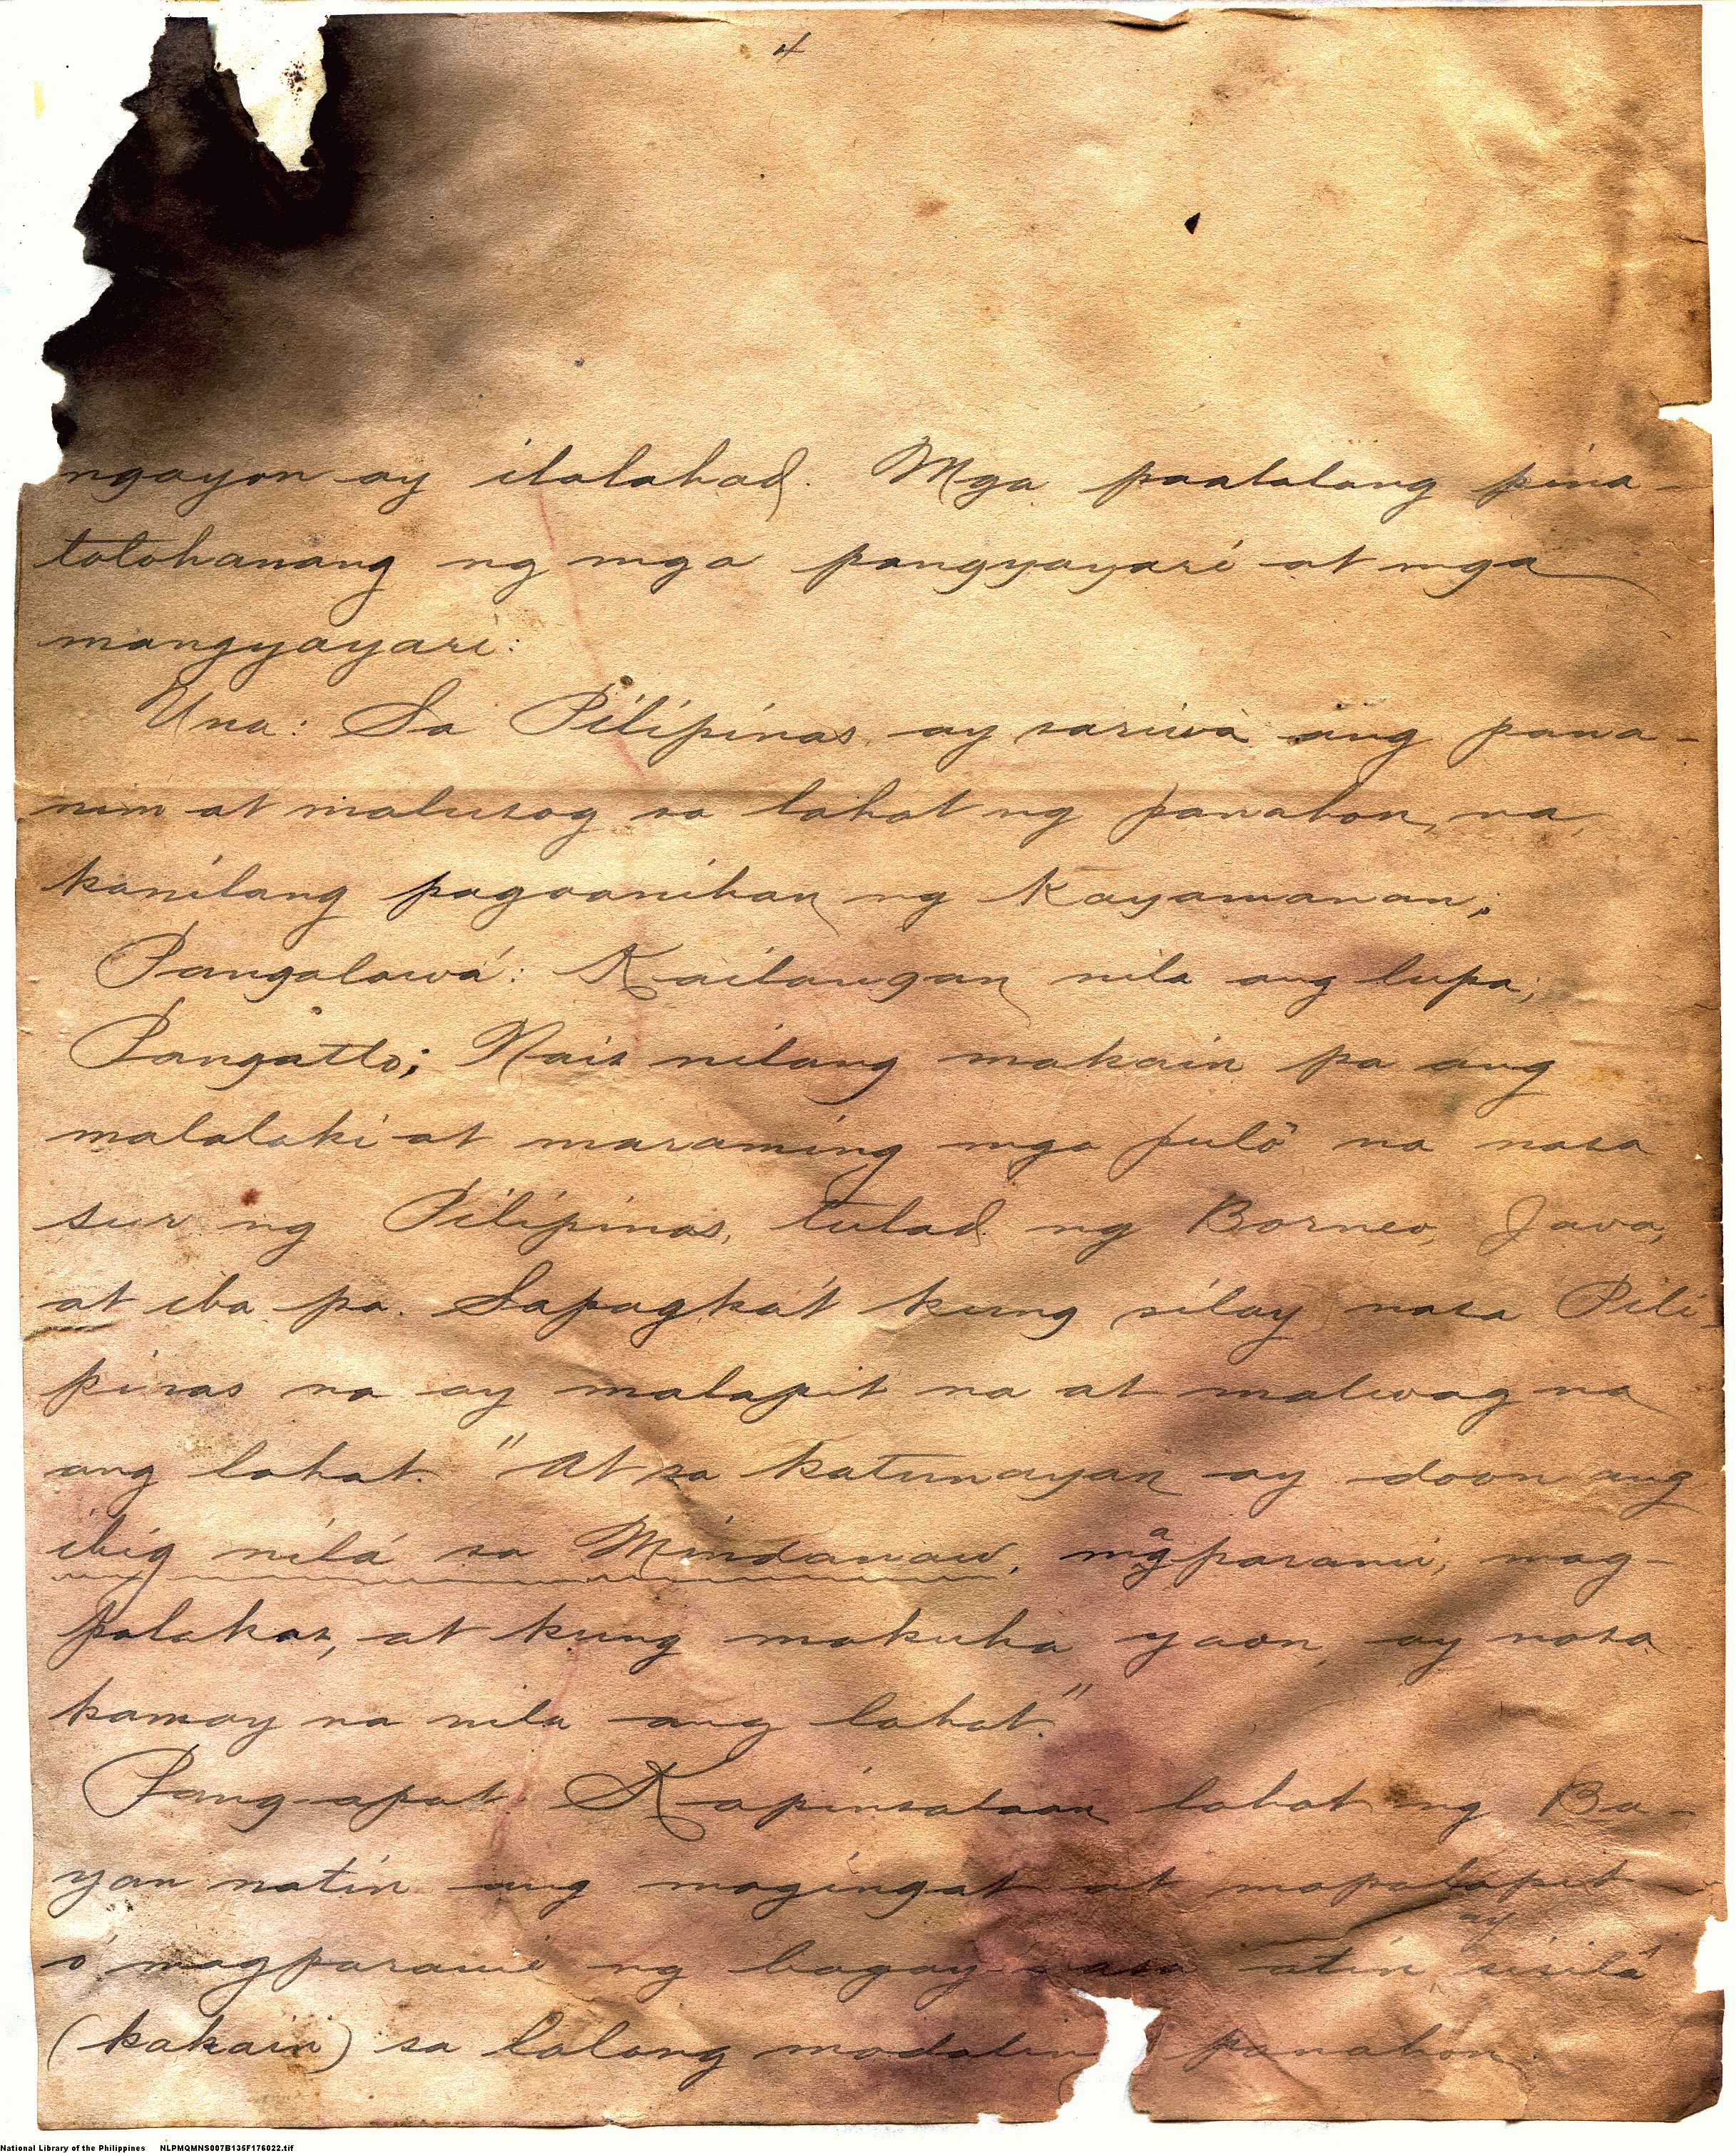 4
ngayon ay ilalahad. Mga paalalang pina-
totohanang ng mga pangyayari at mga
mangyayari:
Una: Sa Pilipinas ay sariwà ang pana-
nim at malusog sa lahat ng panahon, na
kanilang pagaanihan ng Kayamanan;
Pangalawá: Kailangan nila ang lupa;
Pangatlo; Nais nilang makain pa ang
malalaki at maraming mga pulô na nasa
sur ng Pilipinas, tulad ng Borneo, Java,
at iba pa. Sapagkát kung silay nasa Pili-
pinas na ay malapit na at maliwag na
ang lahat. "At sa katunayan ay doon ang
ibig nilá sa Mindanaw, magparami, mag-
palakas, at kung makuha yaon, ay nasa
kamay na nila ang lahat."
Pang-apat. Kapinsalaan lahat ng Ba-
yan natin ang magingat at mapalapit
ó magparami ng bagay nasa atin ay sisilâ
(kakain) sa lalong madaling panahon.
National Library of the Philippines NLPMQMNS007B135F176022.tif